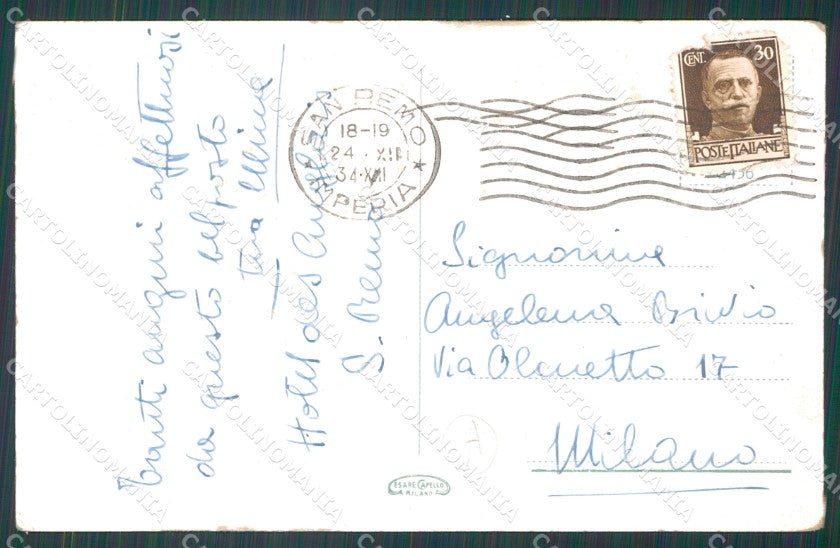 Tanti auguri affettuosi
da questo bel posto
tua
Hotel des
S. Remo
SAN REMO
18-19
24 . XII
34 · XIII
IMPERIA
CENT. 30
POSTE ITALIANE
Signorina
Angelena Brivio
Via Olmetto 17
Milano
CESARE CAPELLO
MILANO
CARTOLINOMANIA